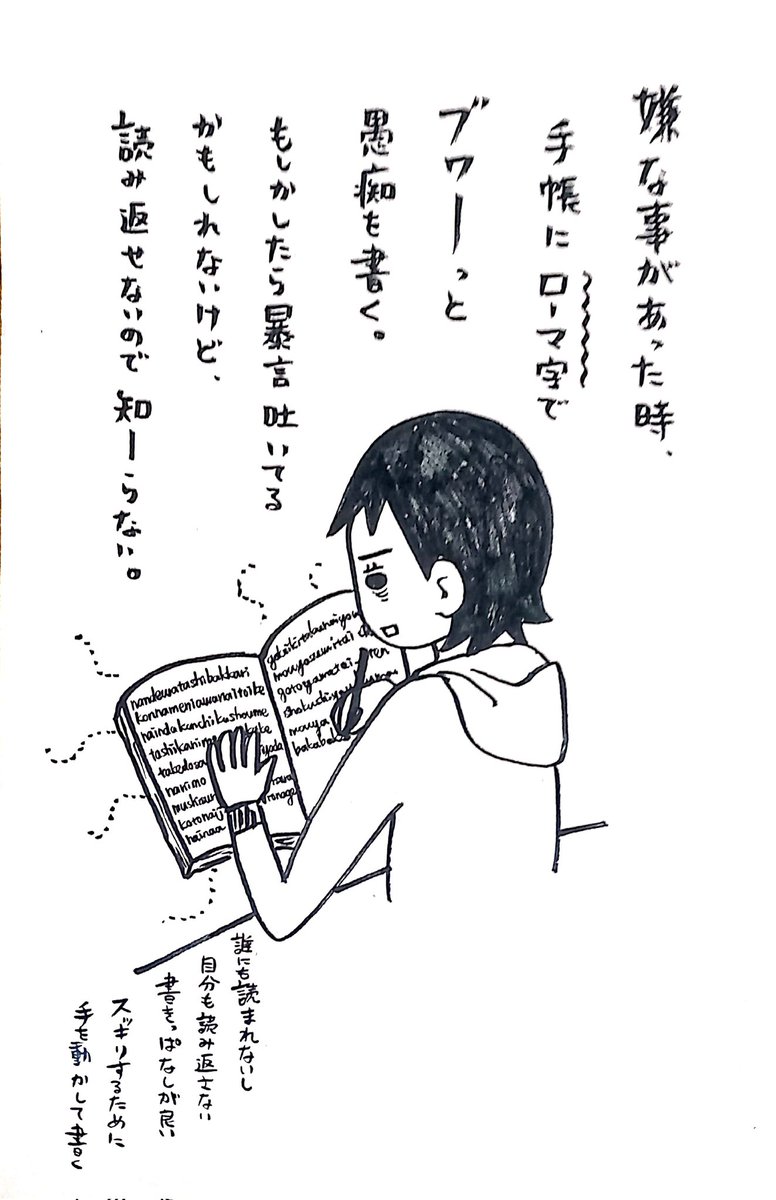 嫌な事があった時、
手帳にローマ字で
ブワーっと
愚痴を書く。
もしかしたら暴言吐いてる
かもしれないけど、
読み返せないので知ーらない。
nandewatashibakkari
konnameniawanaitoike
naindakanchikushoume
tashikanima
takedosa
nanimo
mushaku
kotonaij
nainaa
mouyasumitai
gotoyametai
mouya
誰にも読まれないし
自分も読み返さない
書きっぱなしが良い
スッキリするために
手を動かして書く